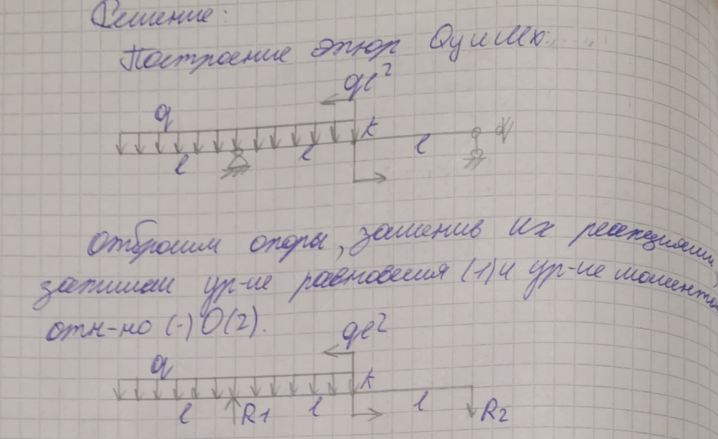 Решение:
Построение эпюр Qy и Mx
ql²
q
k
l l l
Отбросим опоры, заменив их реакциями,
запишем ур-ие равновесия (1) и ур-ие момента
отн-но (·) O (2).
ql²
q
k
l R1 l l R2